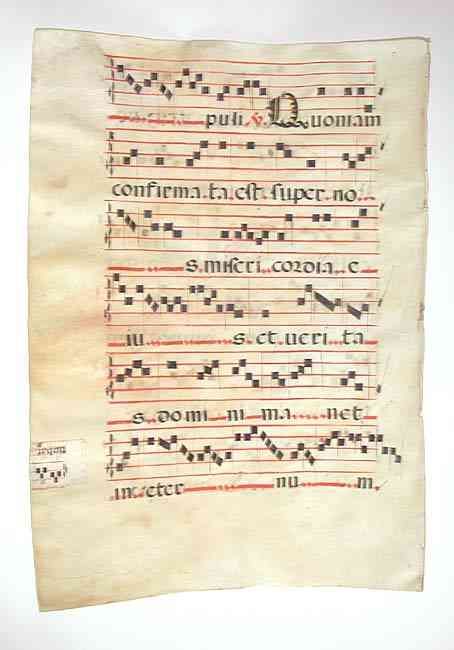 puli. V. Quoniam
confirma.ta.est.super.no.
s.miseri.cordia.e
iu s.et.veri.ta
s.domi ni ma net
in.eter nu m.